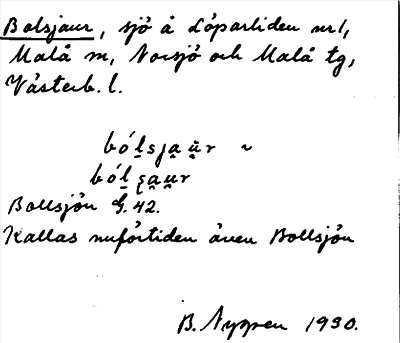 Bolsjaur, sjö å Löparliden nr 1,
Malå sn, Norsjö och Malå tg,
Västerb. l.
bó́l̠sja̯u̯̇r ~
bó́l̠ʂa̯u̯r
Bollsjön G. 42.
Kallas nuförtiden även Bollsjön
B. Nygren 1930.